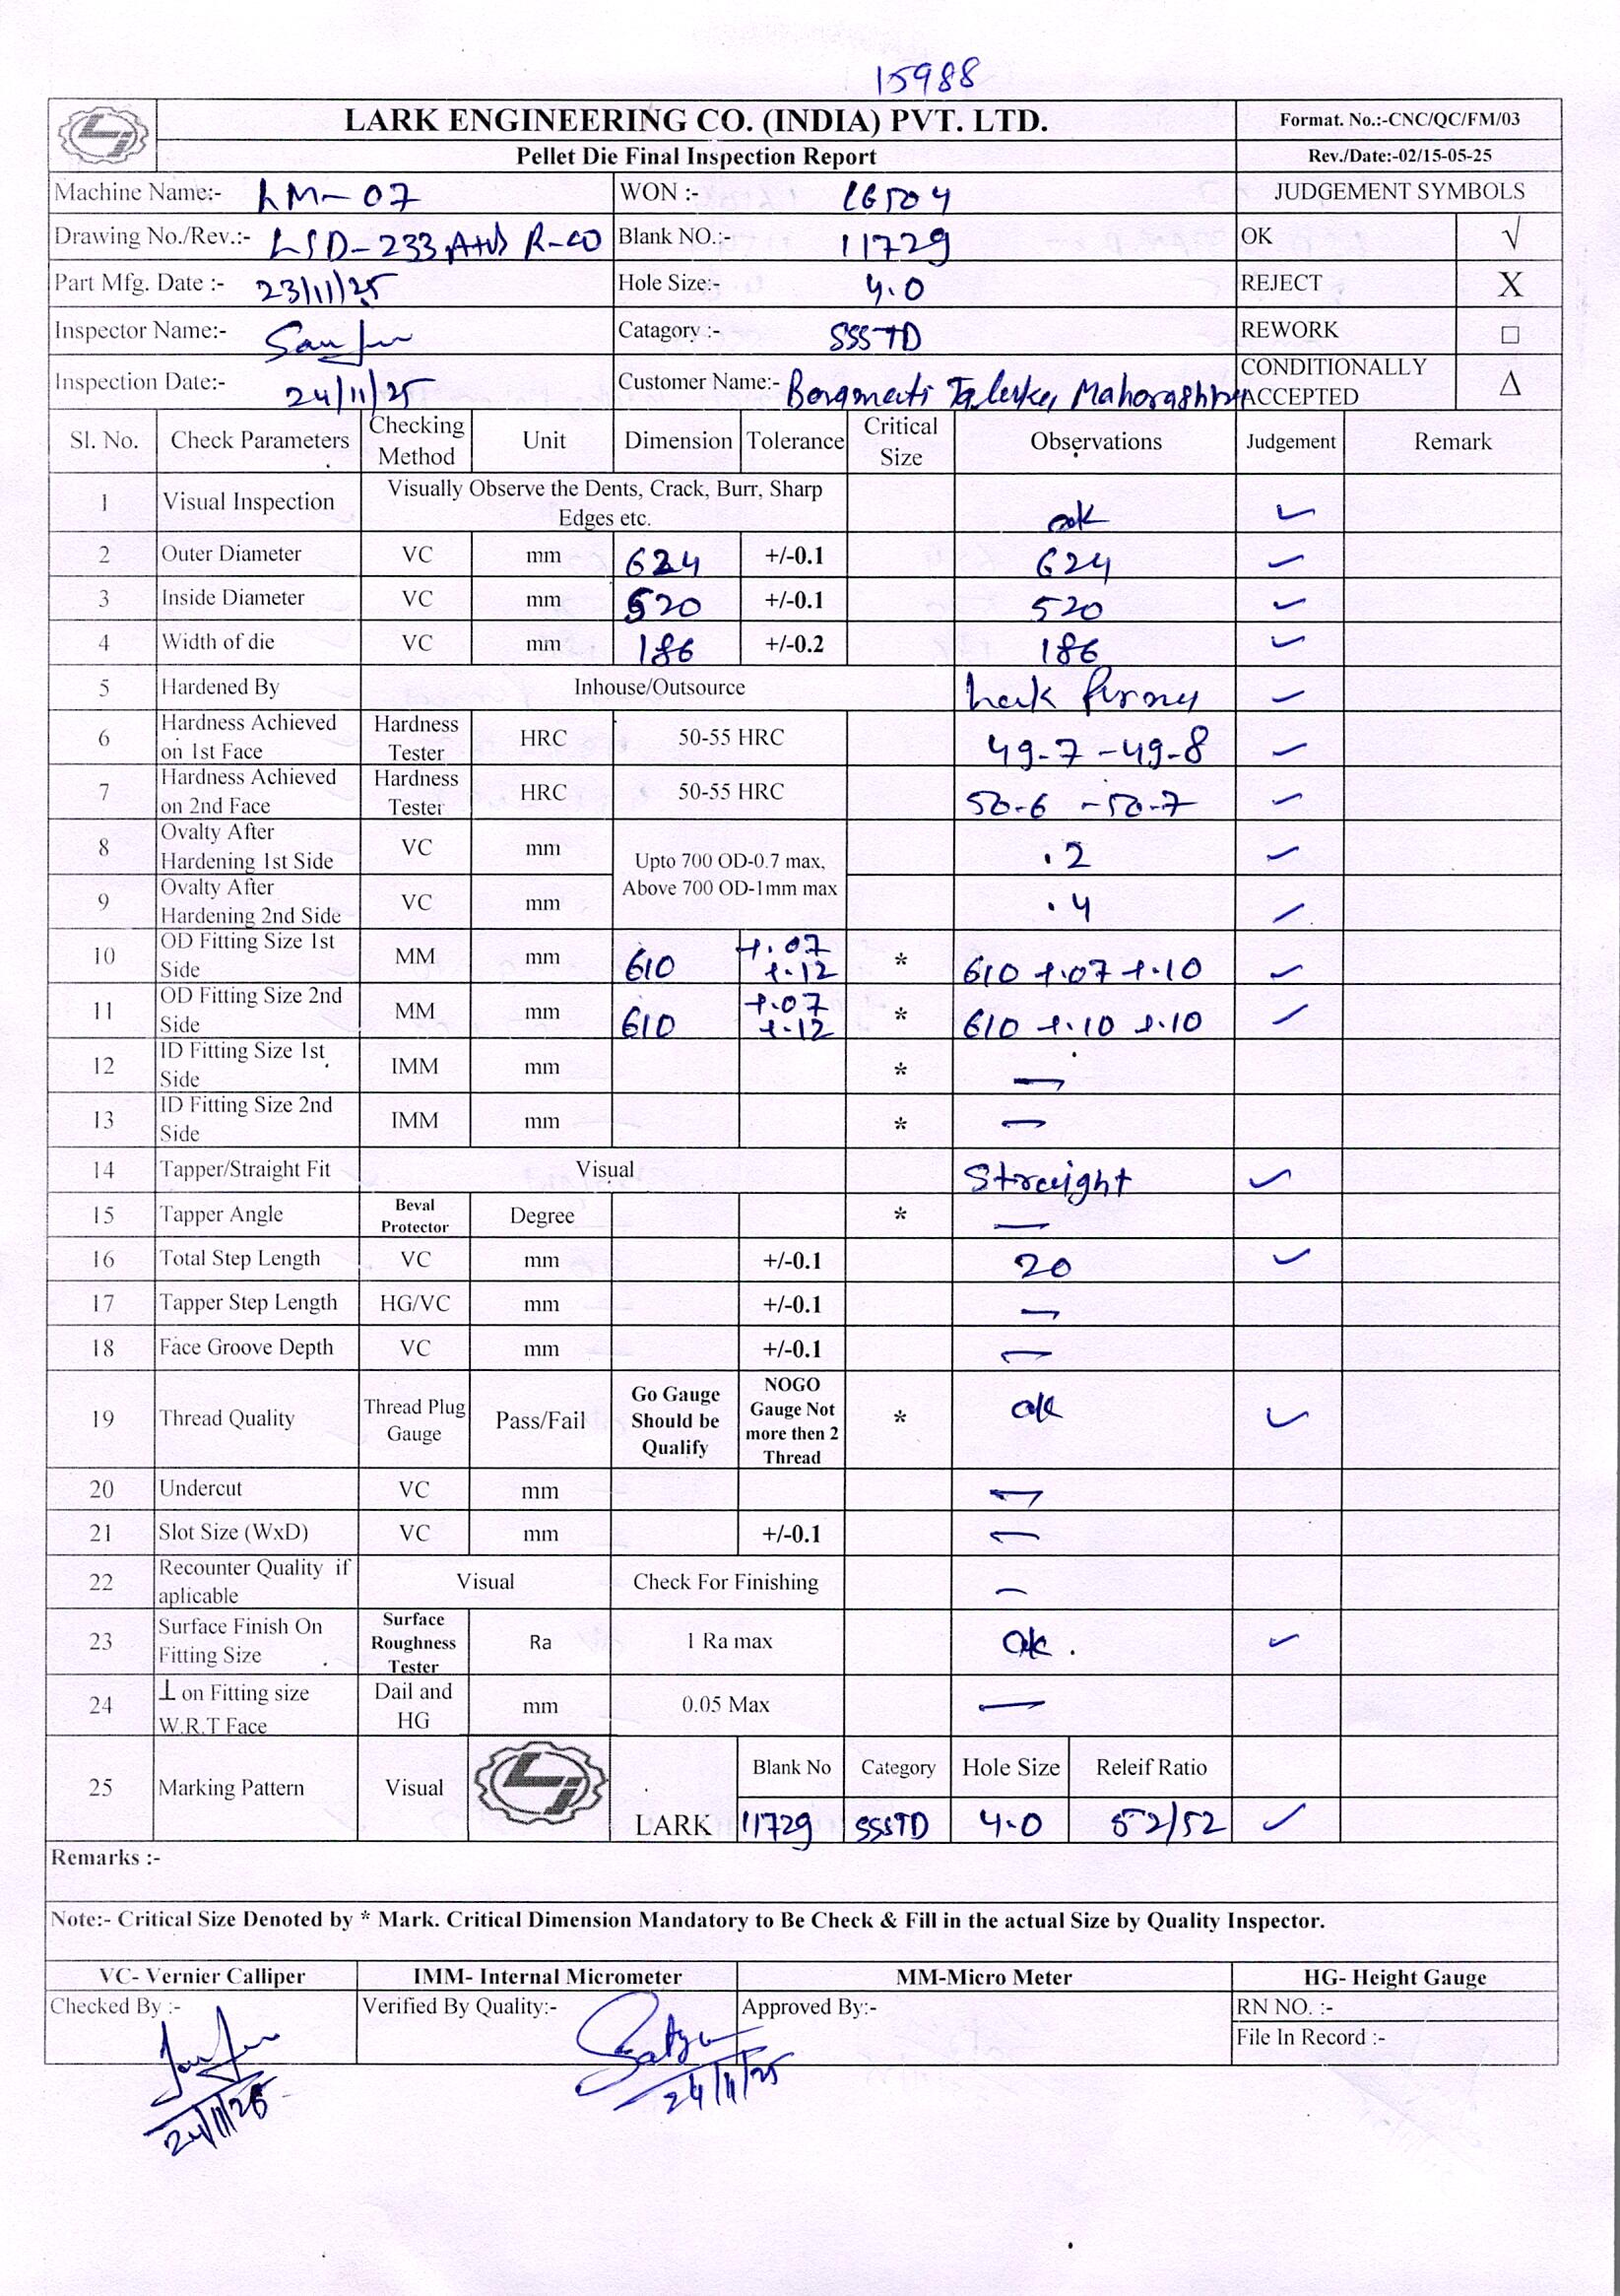 15988
LARK ENGINEERING CO. (INDIA) PVT. LTD. Format. No.:-CNC/QC/FM/03
Pellet Die Final Inspection Report Rev./Date:-02/15-05-25
Machine Name:- LM-07 WON :- 16504 JUDGEMENT SYMBOLS
Drawing No./Rev.:- LSD-233 R-00 Blank NO.:- 11729 OK √
Part Mfg. Date :- 23/11/25 Hole Size:- 4.0 REJECT X
Inspector Name:- Catagory :- SSSTD REWORK □
Inspection Date:- 24/11/25 Customer Name:- Taluka, Maharashtra CONDITIONALLY ACCEPTED Δ
Sl. No. Check Parameters Checking Method Unit Dimension Tolerance Critical Size Observations Judgement Remark
1 Visual Inspection Visually Observe the Dents, Crack, Burr, Sharp Edges etc. ok ✓
2 Outer Diameter VC mm 624 +/-0.1 624 ✓
3 Inside Diameter VC mm 520 +/-0.1 520 ✓
4 Width of die VC mm 186 +/-0.2 186 ✓
5 Hardened By Inhouse/Outsource ✓
6 Hardness Achieved on 1st Face Hardness Tester HRC 50-55 HRC 49-7 - 49-8 ✓
7 Hardness Achieved on 2nd Face Hardness Tester HRC 50-55 HRC 50-6 - 50-7 ✓
8 Ovalty After Hardening 1st Side VC mm Upto 700 OD-0.7 max, Above 700 OD-1mm max .2 ✓
9 Ovalty After Hardening 2nd Side VC mm .4 ✓
10 OD Fitting Size 1st Side MM mm 610 +.07 +.12 * 610 +.07 +.10 ✓
11 OD Fitting Size 2nd Side MM mm 610 +.07 +.12 * 610 +.10 +.10 ✓
12 ID Fitting Size 1st Side IMM mm * —
13 ID Fitting Size 2nd Side IMM mm * —
14 Tapper/Straight Fit Visual Straight ✓
15 Tapper Angle Beval Protector Degree * —
16 Total Step Length VC mm +/-0.1 20 ✓
17 Tapper Step Length HG/VC mm +/-0.1 —
18 Face Groove Depth VC mm +/-0.1 —
19 Thread Quality Thread Plug Gauge Pass/Fail Go Gauge Should be Qualify NOGO Gauge Not more then 2 Thread * ok ✓
20 Undercut VC mm —
21 Slot Size (WxD) VC mm +/-0.1 —
22 Recounter Quality if aplicable Visual Check For Finishing —
23 Surface Finish On Fitting Size Surface Roughness Tester Ra 1 Ra max ok. ✓
24 ⊥ on Fitting size W.R.T Face Dail and HG mm 0.05 Max —
25 Marking Pattern Visual LARK Blank No Category Hole Size Releif Ratio
11729 SSSTD 4.0 52/52 ✓
Remarks :-
Note:- Critical Size Denoted by * Mark. Critical Dimension Mandatory to Be Check & Fill in the actual Size by Quality Inspector.
VC- Vernier Calliper IMM- Internal Micrometer MM-Micro Meter HG- Height Gauge
Checked By :- Verified By Quality:- Approved By:- RN NO. :-
File In Record :-
24/11/25 24/11/25